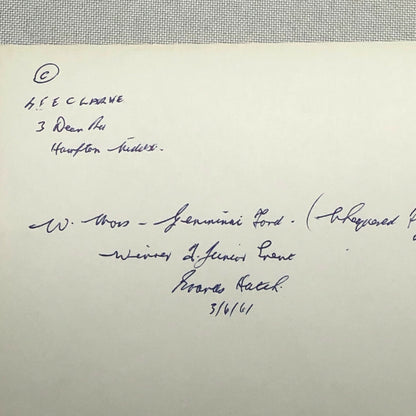 ©
3 Dean Rd
Hampton Middx.
W. Moss - Gemini Ford. (Chequered F
Winner F. Junior Event
Brands Hatch.
3/6/61